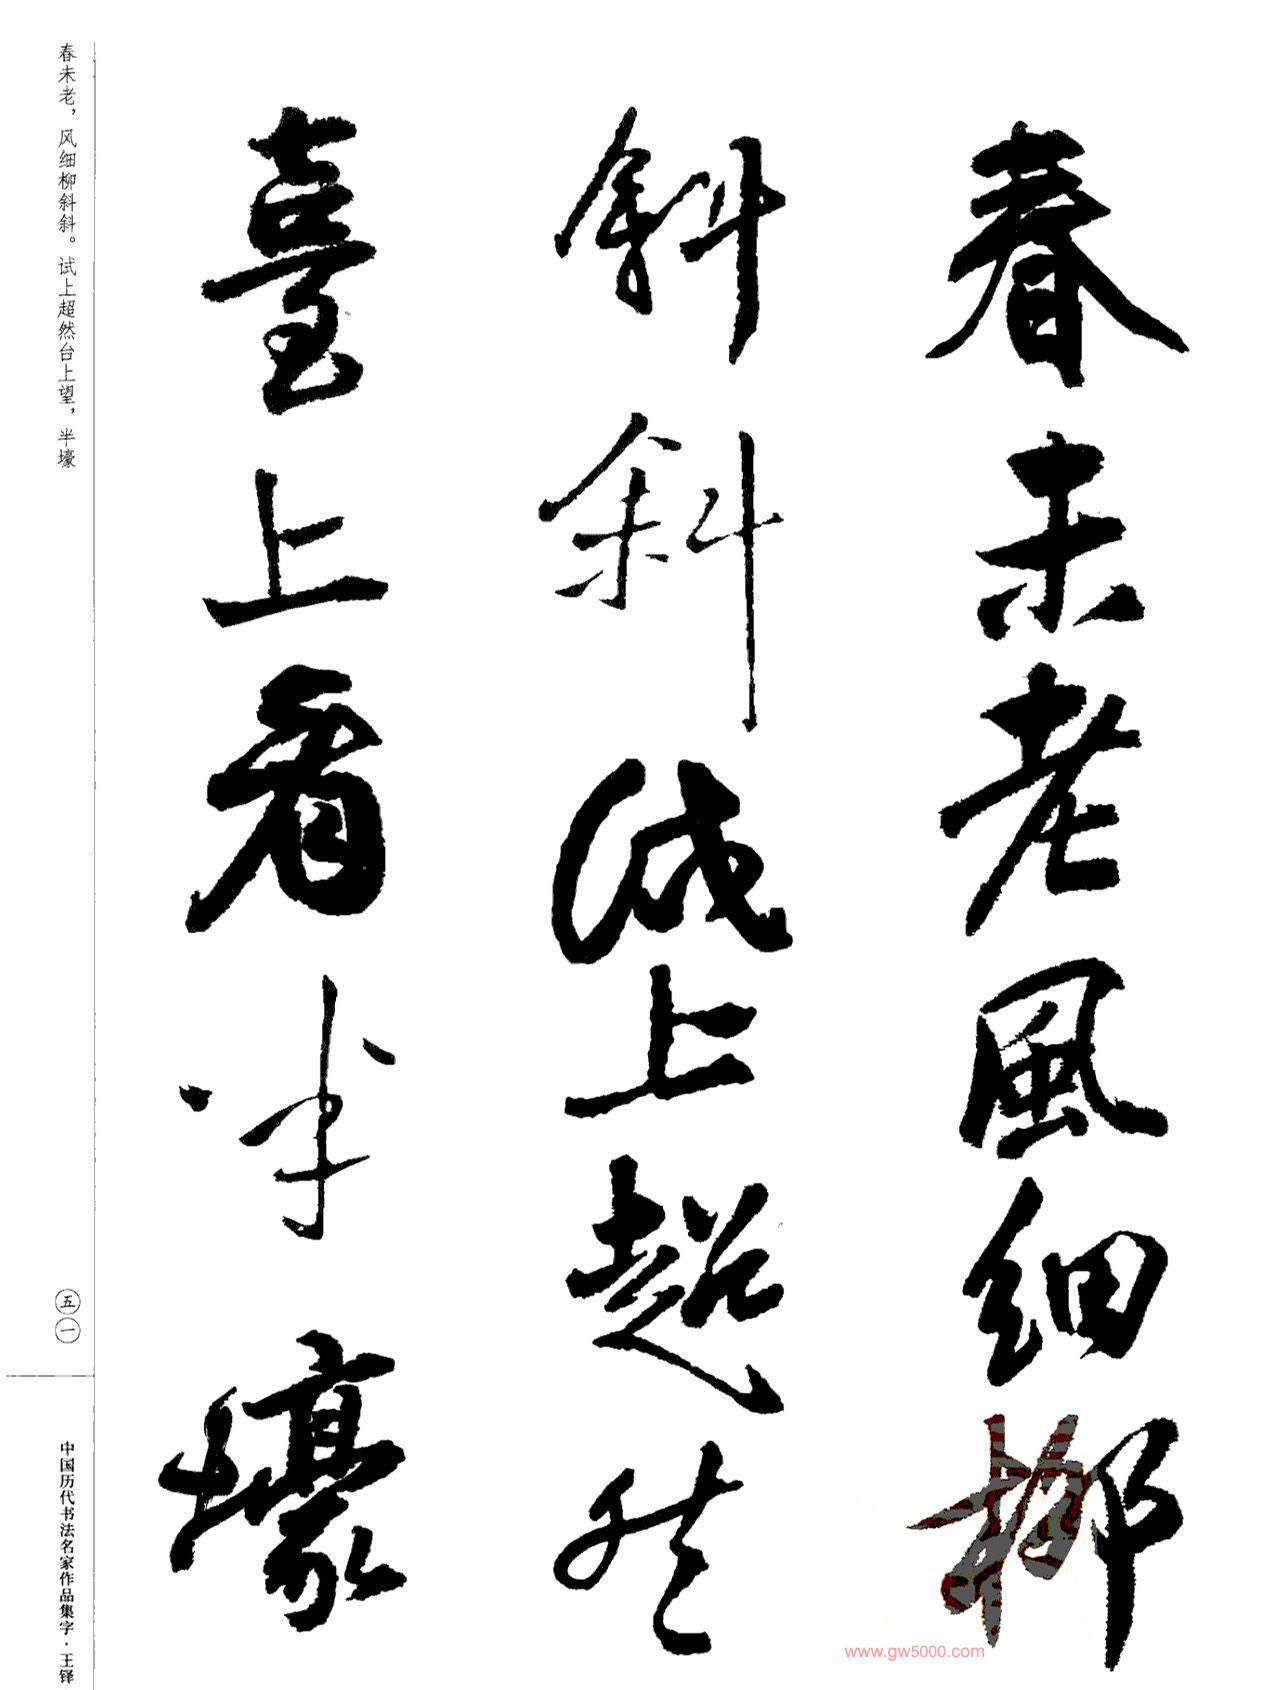 春未老風細柳
斜斜試上超然
臺上看半壕
春未老，风细柳斜斜。试上超然台上望，半壕
五一
中国历代书法名家作品集字·王铎
www.gw5000.com